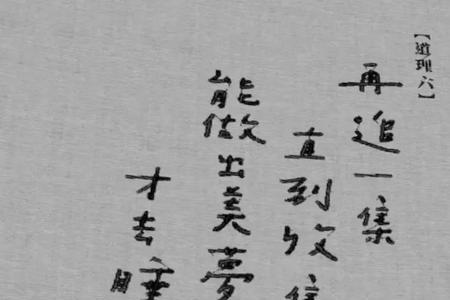 【道理六】
再追一集
直到收
能做出美夢
才去睡